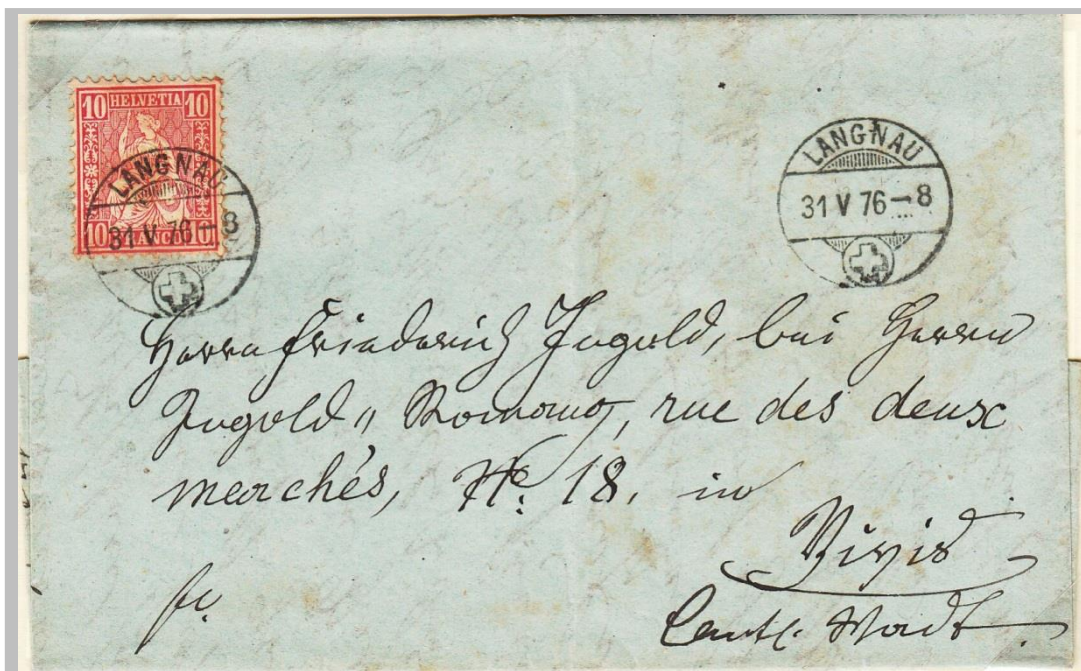 10 HELVETIA 10
10 FRANCO 10
LANGNAU
31 V 76-8
LANGNAU
31 V 76-8
Herrn Friederich Ingold, bei Herrn
Ingold " rue des deux
marchés, No. 18. in
Vivis
Cant. Wadt.
fr.